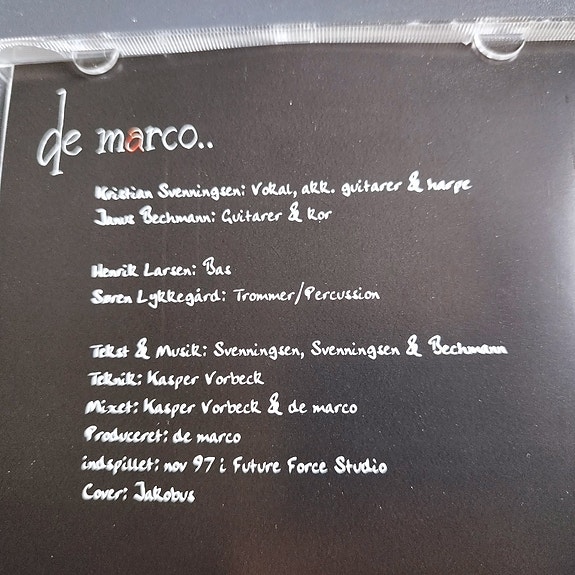 de marco..
Kristian Svenningsen: Vokal, akk. guitarer & harpe
Janus Bechmann: Guitarer & kor
Henrik Larsen: Bas
Søren Lykkegård: Trommer/Percussion
Tekst & Musik: Svenningsen, Svenningsen & Bechmann
Teknik: Kasper Vorbeck
Mixet: Kasper Vorbeck & de marco
Produceret: de marco
indspillet: nov 97 i Future Force Studio
Cover: Jakobus